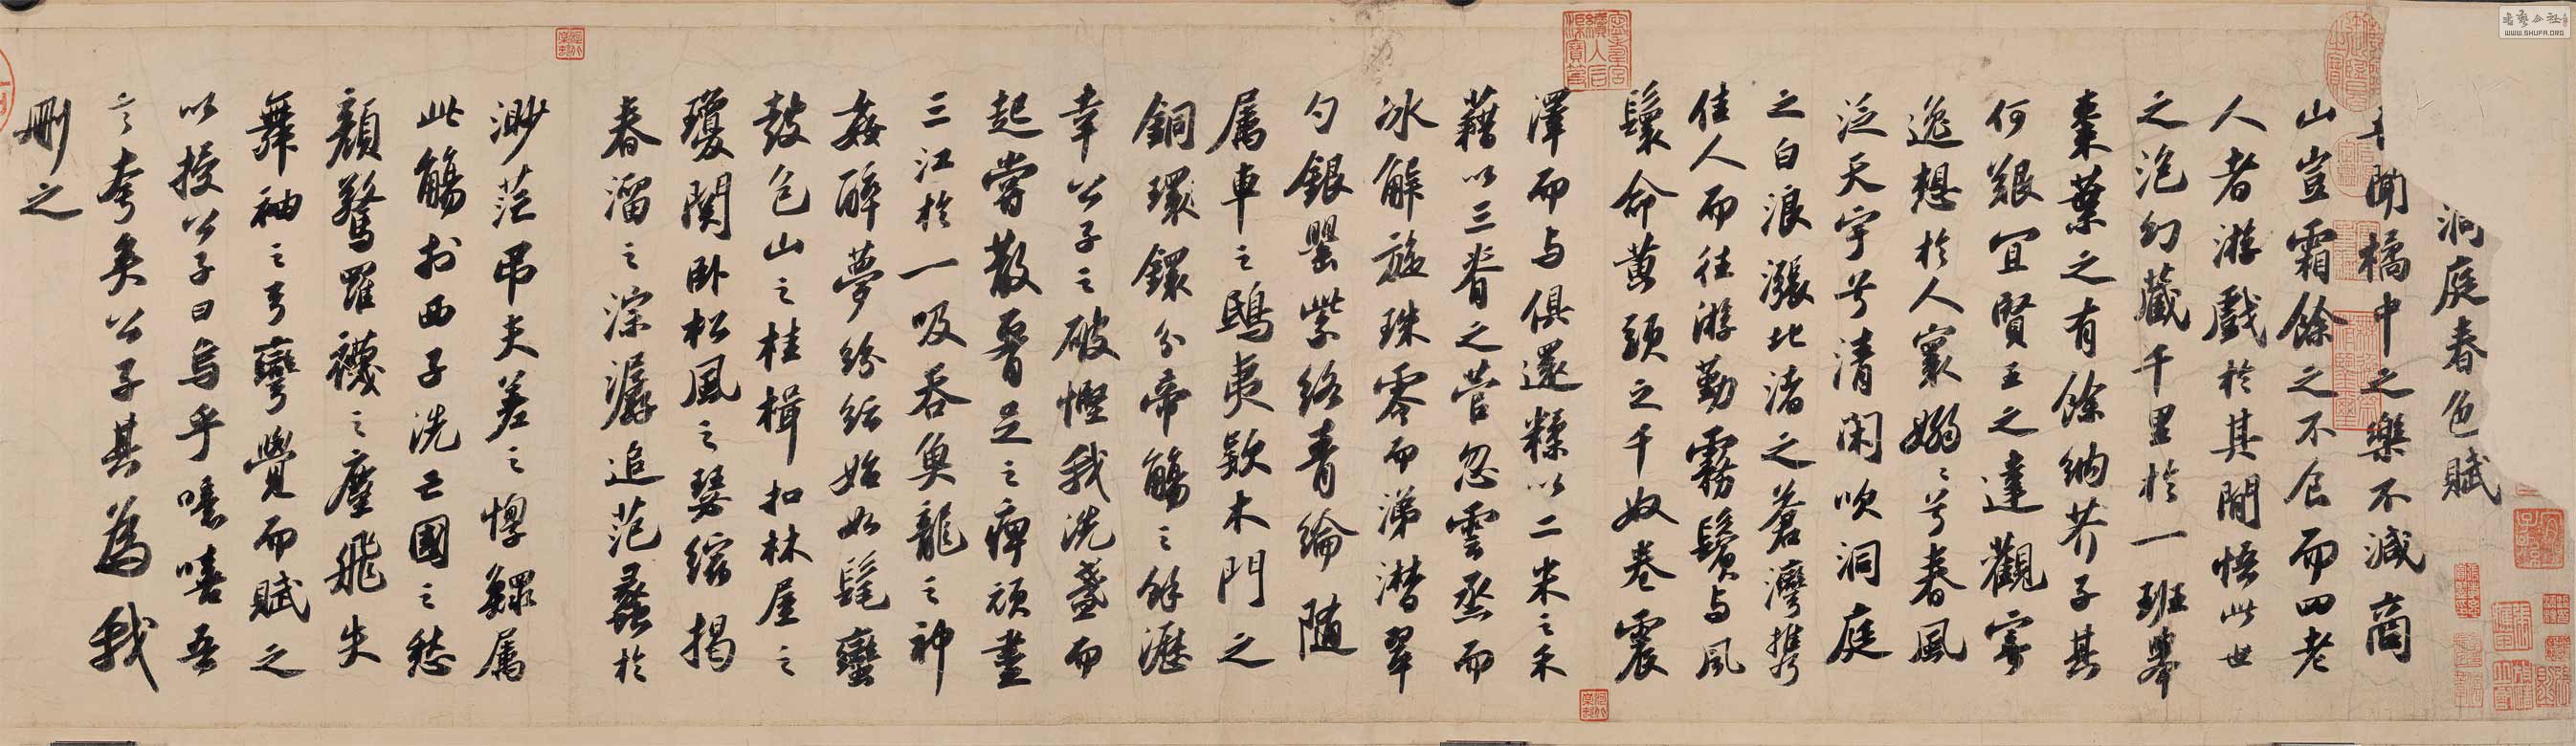 洞庭春色賦
聞橘中之樂不減商
山豈霜餘之不食而四老
人者游戲於其間悟此世
之泡幻藏千里於一班舉
棗葉之有餘納芥子其
何艱宜賢王之達觀寄
逸想於人寰嫋〻兮春風
泛天宇兮清閑吹洞庭
之白浪漲北渚之蒼灣攜
佳人而往游勤霧鬢與風
鬟命黃頭之千奴卷震
澤而与俱還糅以二米之禾
藉以三脊之菅忽雲烝而
冰解旋珠零而涕潸翠
勺銀罌紫絡青綸隨
属車之鴟夷款木門之
銅環鐶分帝觴之餘瀝
幸公子之破慳我洗盞而
起嘗散腰足之痺頑盡
三江於一吸吞魚龍之神
姦醉夢紛紜始如髦蠻
鼓包山之桂楫扣林屋之
瓊関卧松風之瑟縮揭
春溜之淙潺追范蠡於
渺茫吊夫差之惸鰥属
此觴於西子洗亡國之愁
顏驚羅襪之塵飛失
舞袖之弓彎覺而賦之
以授公子曰烏乎噫嘻吾
言夸矣公子其為我
刪之
WWW.SHUFA.ORG